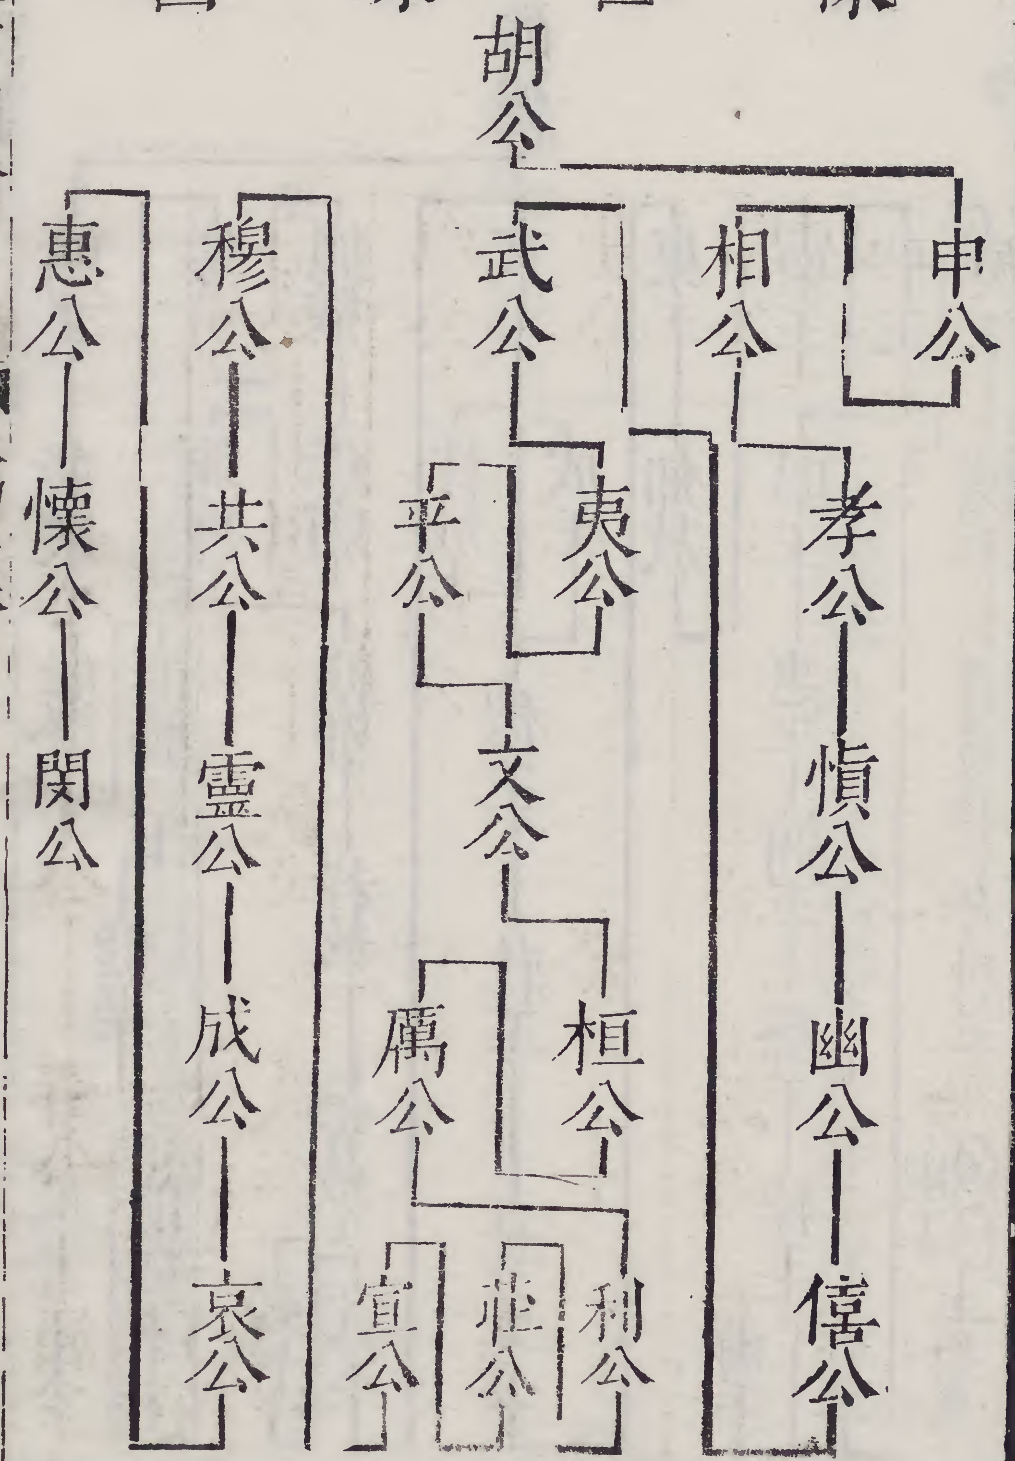 胡公
申公
相公
孝公
慎公
幽公
僖公
武公
夷公
平公
文公
桓公
厲公
利公
莊公
宣公
穆公
共公
靈公
成公
哀公
惠公
懷公
閔公